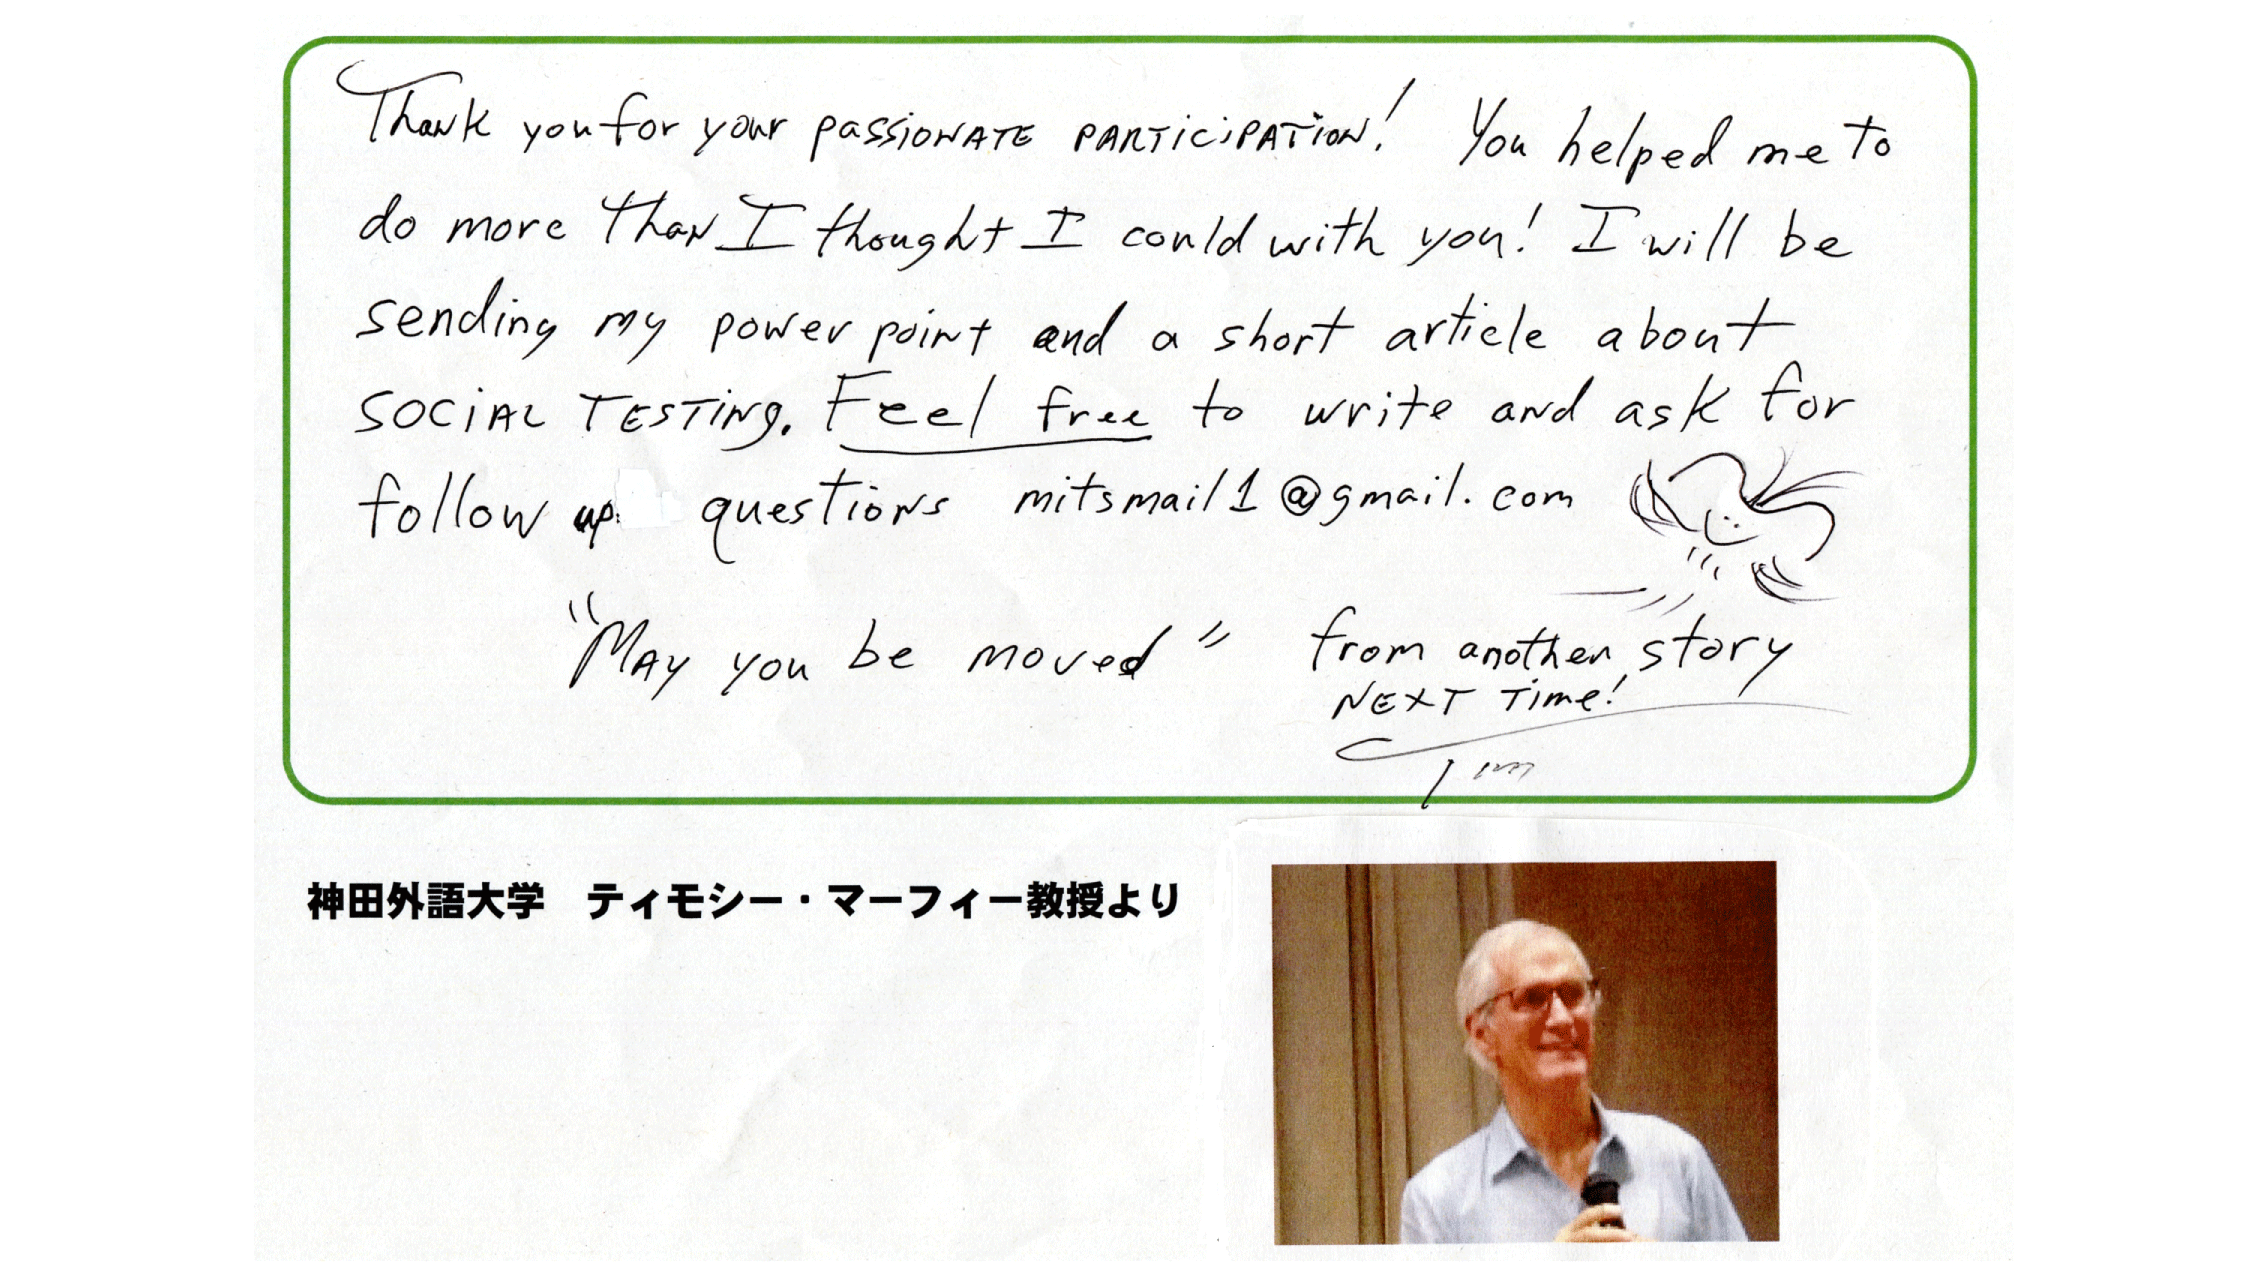 Thank you for your passionate participation! You helped me to
do more than I thought I could with you! I will be
sending my power point and a short article about
SOCIAL TESTING. Feel free to write and ask for
follow up questions mitsmail1@gmail.com
"May you be moved" from another story
NEXT Time!
Tim
神田外語大学　ティモシー・マーフィー教授より